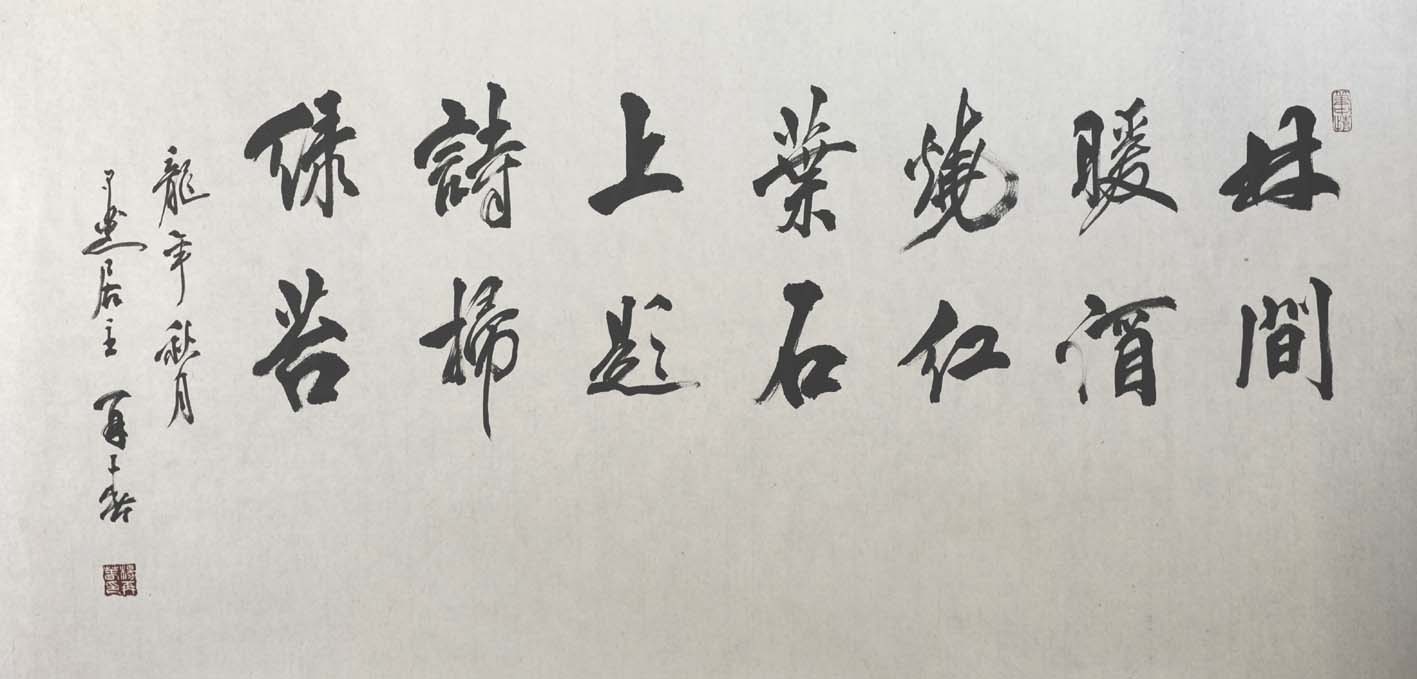 林間
暖酒
燒紅
葉石
上題
詩掃
綠苔
龍年秋月
居主再春